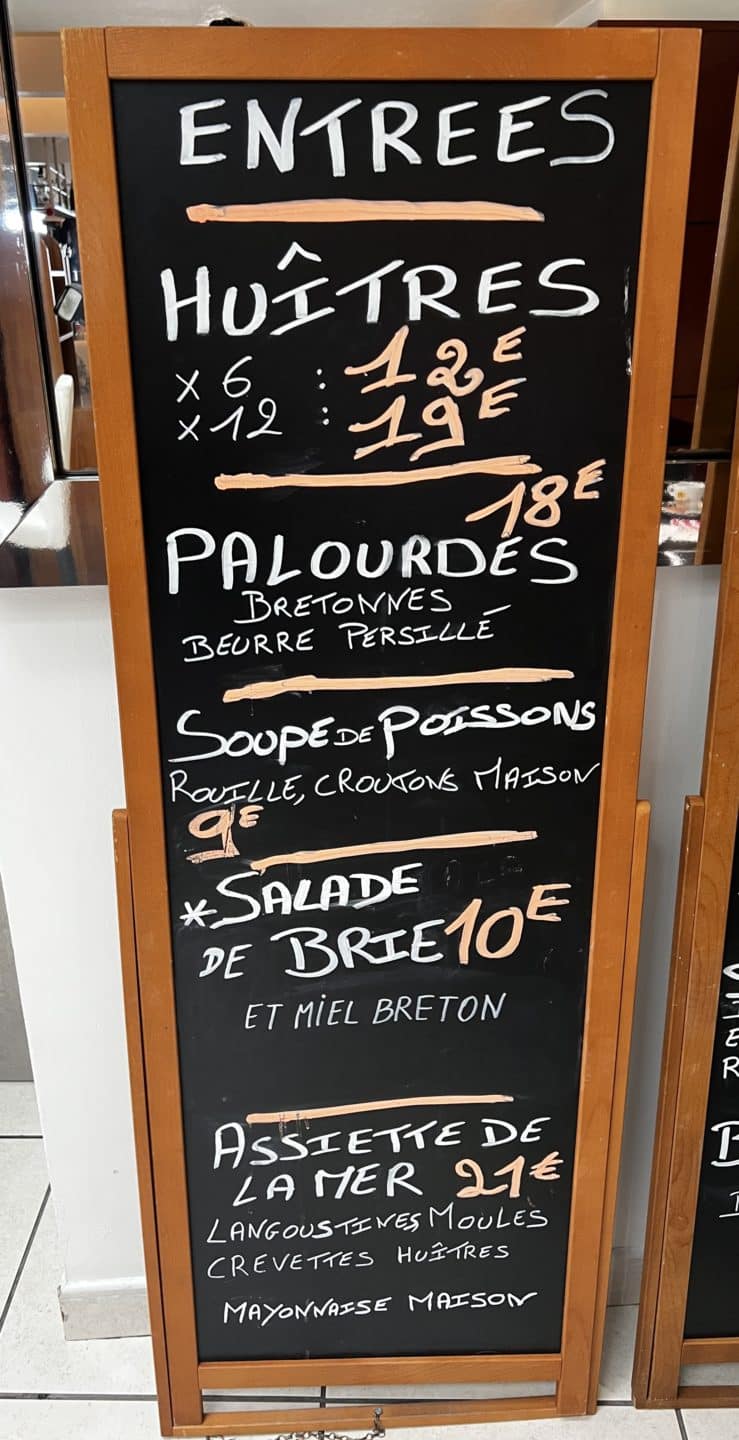 ENTREES
HUÎTRES
x 6 : 12E
x 12 : 19E
18E
PALOURDES
BRETONNES
BEURRE PERSILLÉ
SOUPE DE POISSONS
ROUILLE, CROUTONS MAISON
9E
*SALADE
DE BRIE 10E
ET MIEL BRETON
ASSIETTE DE
LA MER 21€
LANGOUSTINES MOULES
CREVETTES HUÎTRES
MAYONNAISE MAISON